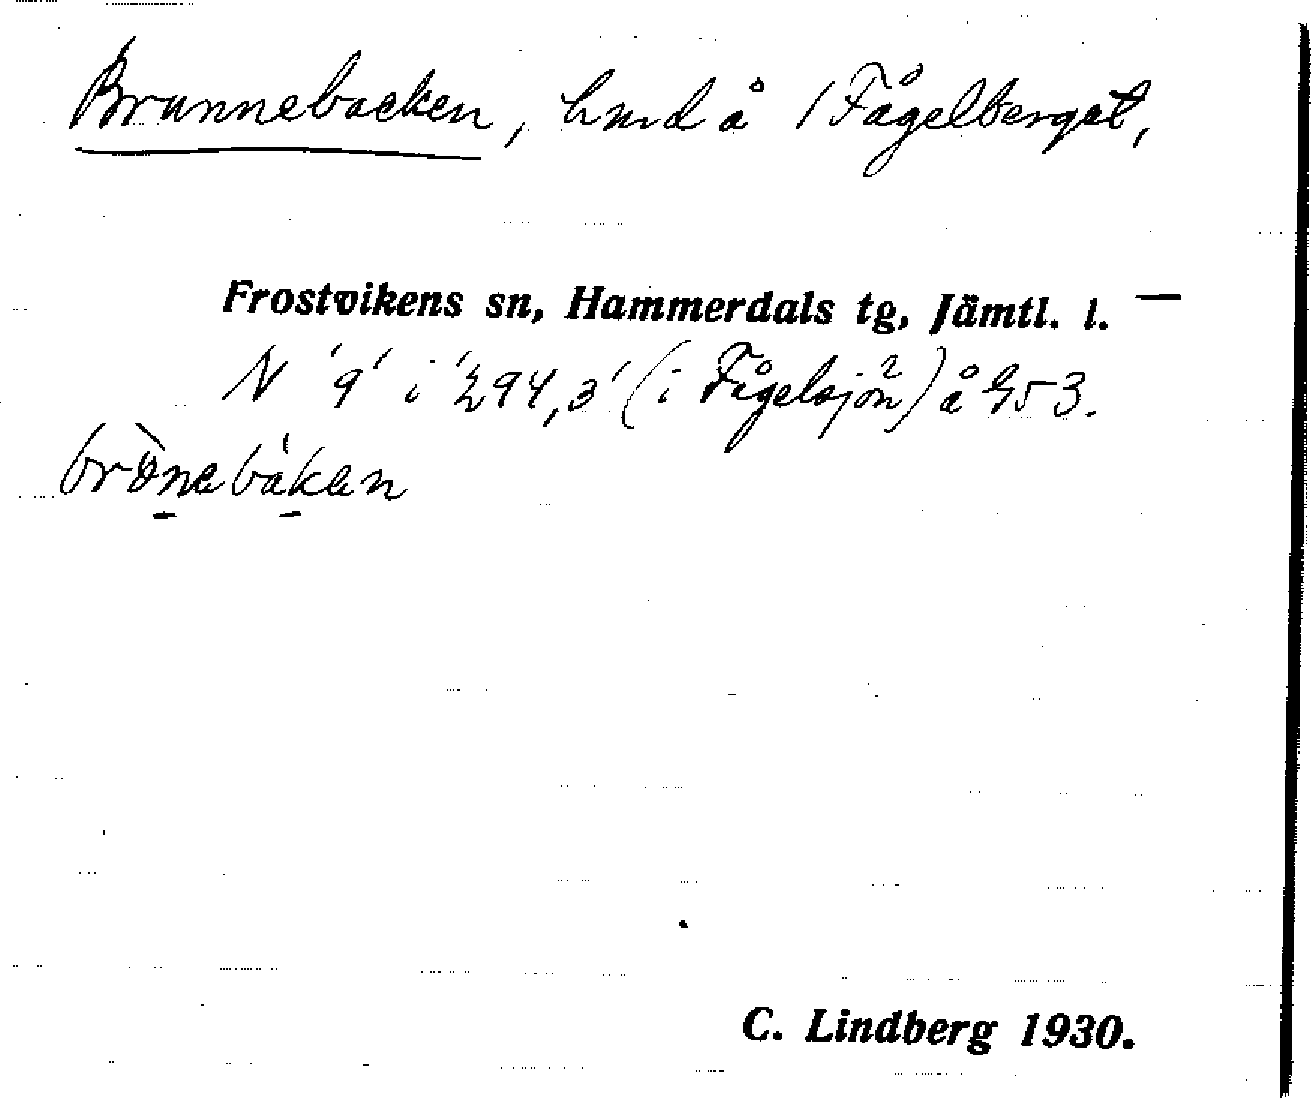 Brunnebacken, hmd å /Fågelberget,
Frostvikens sn, Hammerdals tg, Jämtl. l. —
N '9' i '294,3' (i Fågelsjön²) å G53.
brònebákan
C. Lindberg 1930.